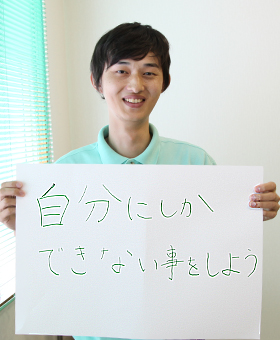 自分にしか
できない事をしよう